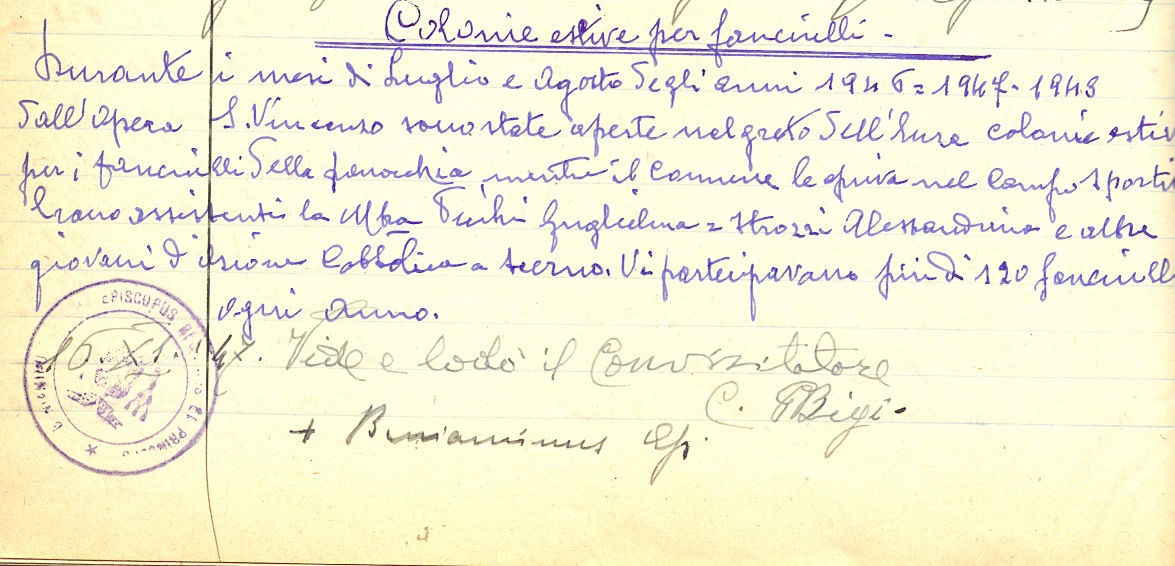 Colonie estive per fanciulli -
Durante i mesi di Luglio e Agosto degli anni 1946 = 1947 - 1948
dall'Opera S. Vincenzo sono state aperte nel greto dell'Enza colonie estiv
per i fanciulli della parrocchia, mentre il Comune le apriva nel Campo Sporti
Erano assistenti la Guglielma = Strozzi Alessandrina e altre
giovani d'Azione Cattolica a turno. Vi partecipavano più di 120 fanciull
ogni anno.
10. XI. 47. Vide e lodò il Convisitatore
C. Bigi.
+ Beniaminus Ep.
EPISCOPUS ET PRINCEPS